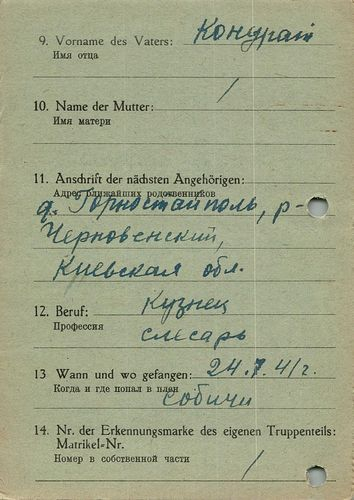 9. Vorname des Vaters: Кондрат
Имя отца
/
10. Name der Mutter:
Имя матери
11. Anschrift der nächsten Angehörigen:
Адрес ближайших родственников
д. Горностайполь, р-
Черновенский,
Киевская обл.
12. Beruf: Кузнец
Профессия
слесарь
13 Wann und wo gefangen: 24.7.41г.
Когда и где попал в плен
Собичи
14. Nr. der Erkennungsmarke des eigenen Truppenteils:
Matrikel-Nr.
Номер в собственной части
/